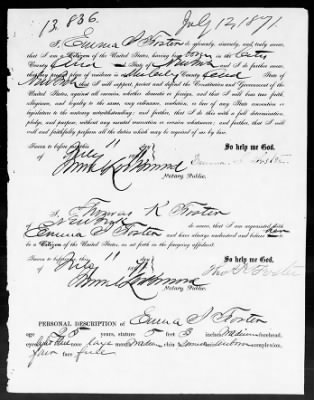 13,836.
July 12, 1871.
I, Emma J Foster do solemnly, sincerely, and truly swear,
that I am a Citizen of the United States, having been born in the City
County and State of New York And I do further swear,
my place of residence is in the City County and State of
New York that I will support, protect and defend the Constitution and Government of the
United States, against all enemies, whether domestic or foreign, and that I will bear true faith,
allegiance, and loyalty to the same, any ordinance, resolution, or law of any State convention or
legislature to the contrary notwithstanding; and further, that I do this with a full determination,
pledge, and purpose, without any mental reservation or evasion whatsoever; and further, that I will
well and faithfully perform all the duties which may be required of me by law.
So help me God.
Sworn to before me this 11
July
Notary Public.
I, Thomas K Foster
of New York do swear, that I am acquainted with
Emma J Foster and have always understood and believe
to be a Citizen of the United States, as set forth in the foregoing affidavit.
So help me God.
Sworn to before me this 11
July
Thos K Foster
Notary Public.
PERSONAL DESCRIPTION of Emma J Foster
age stature 5 feet 3 inches medium forehead,
eyes blue nose large mouth medium chin round hair auburn complexion,
fair face full